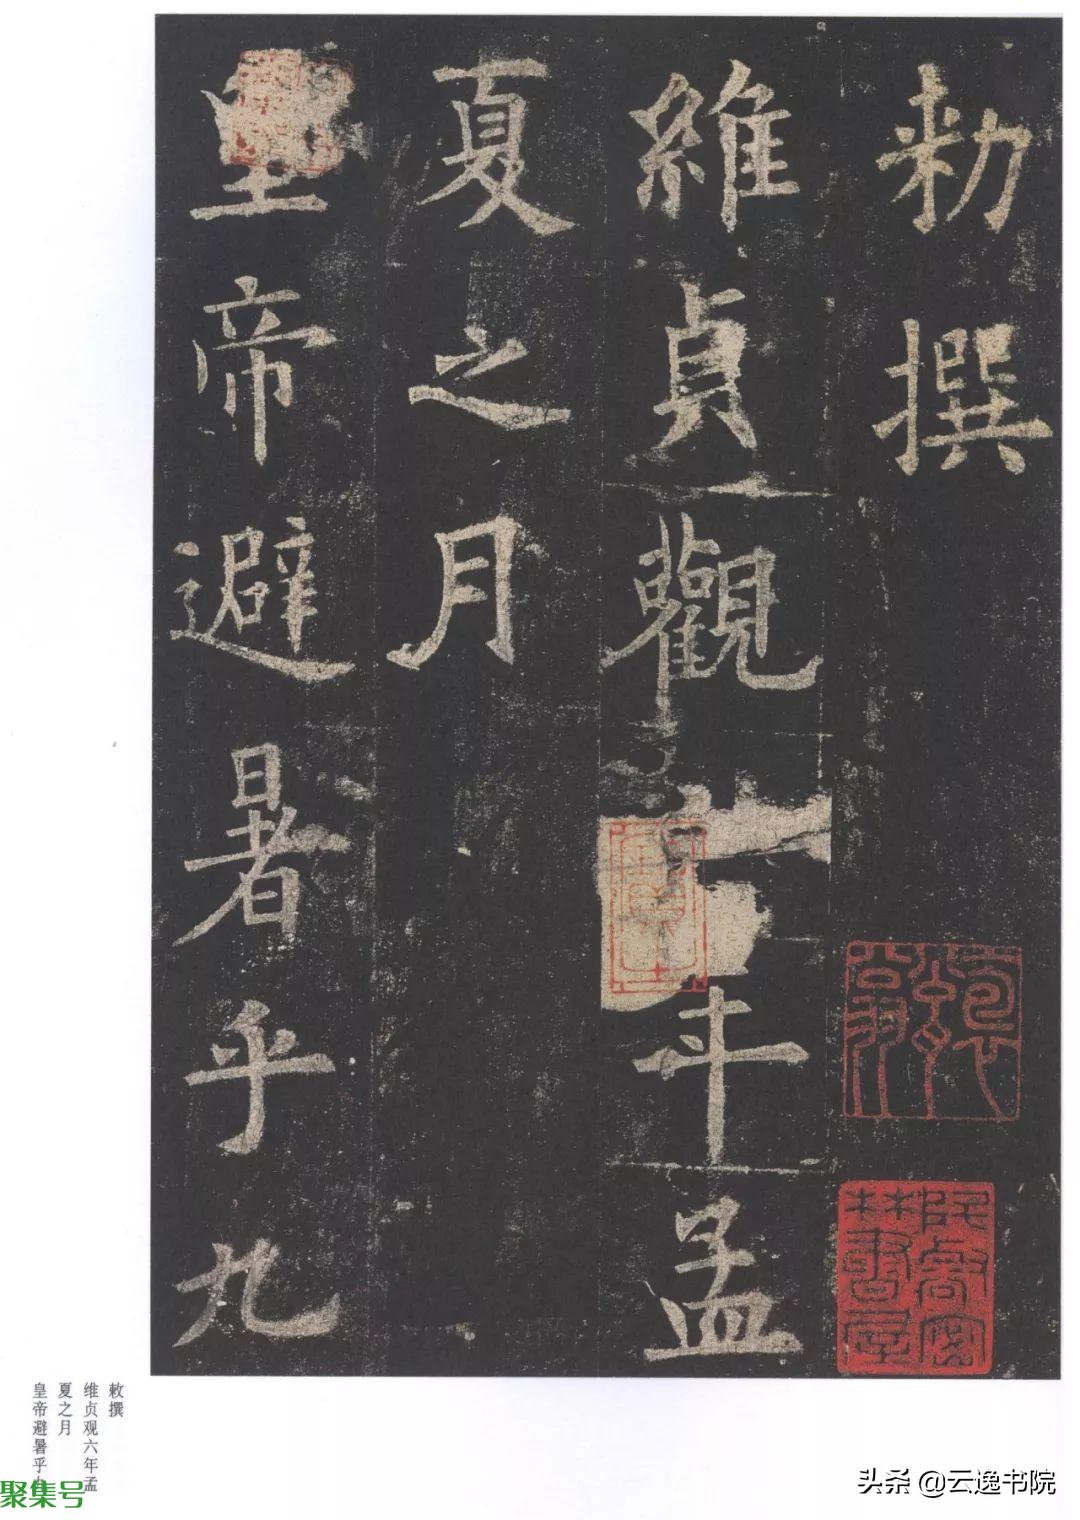 勑撰
維貞觀年孟
夏之月
皇帝避暑乎九
敕撰
维贞观六年孟
夏之月
皇帝避暑乎
聚集号
头条 @云逸书院